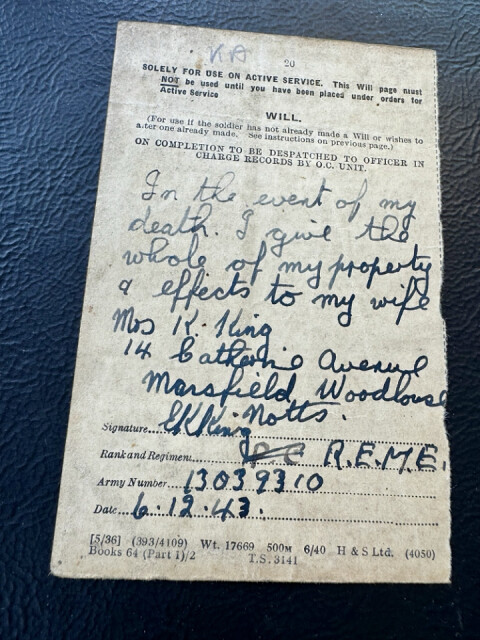 KA
20
SOLELY FOR USE ON ACTIVE SERVICE. This Will page must
NOT be used until you have been placed under orders for
Active Service
WILL.
(For use if the soldier has not already made a Will or wishes to
alter one already made. See instructions on previous page.)
ON COMPLETION TO BE DESPATCHED TO OFFICER IN
CHARGE RECORDS BY O.C. UNIT.
In the event of my
death. I give the
whole of my property
& effects to my wife
Mrs K. King
14 Catherine Avenue
Mansfield Woodhouse
Notts.
Signature... King
Rank and Regiment... R.E.M.E.
Army Number...13039310
Date...6.12.43.
[5/36] (393/4109) Wt. 17669 500M 6/40 H & S Ltd. (4050)
Books 64 (Part 1)/2 T.S. 3141